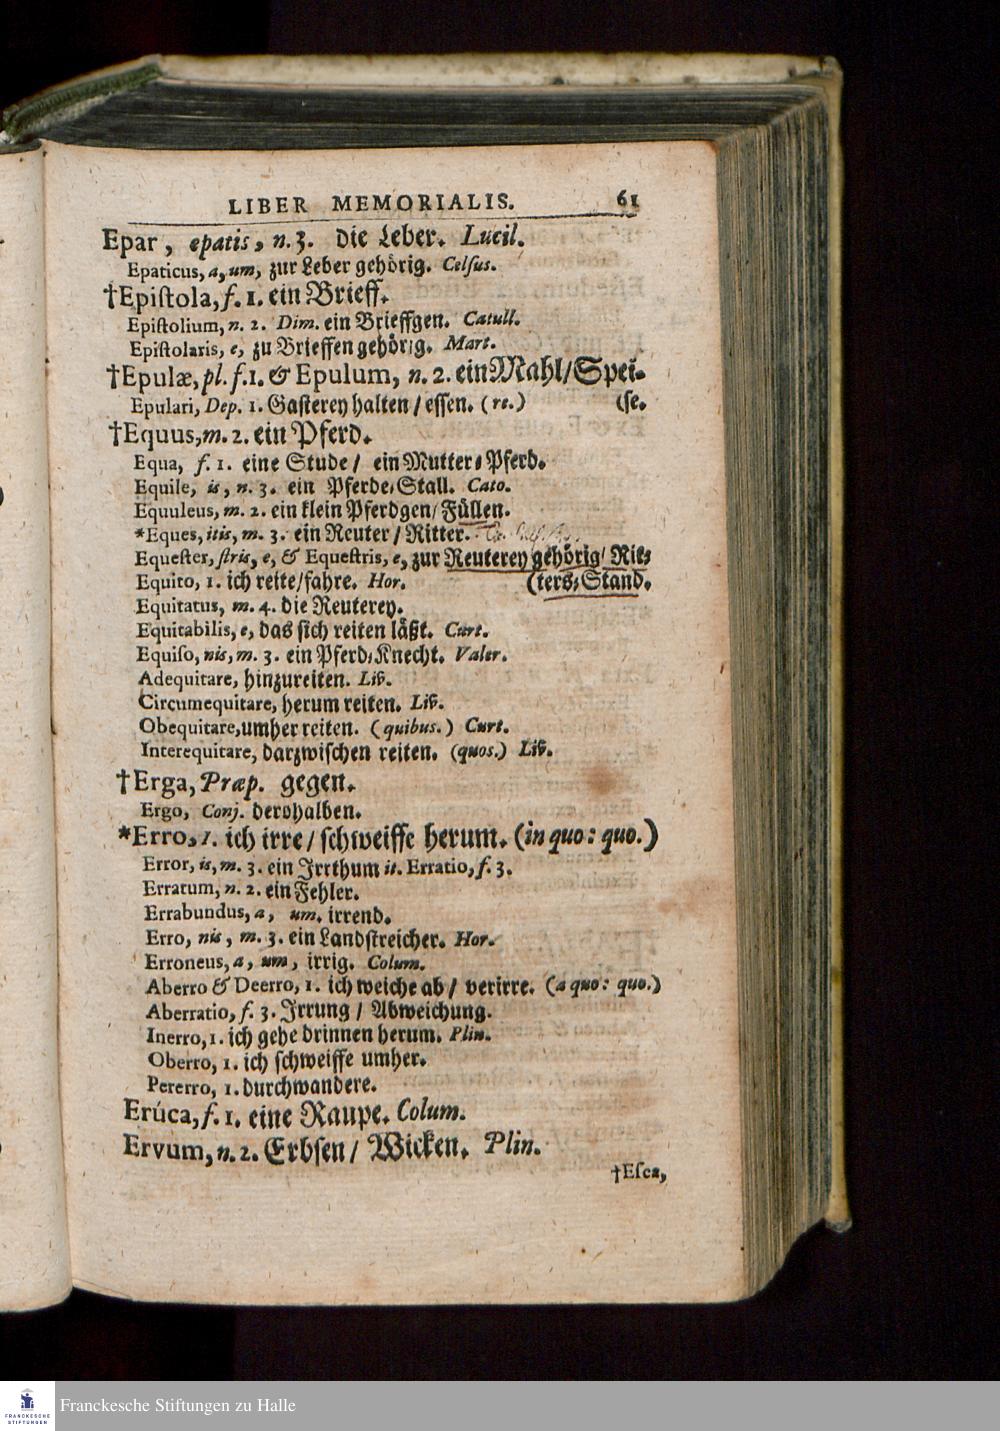 LIBER MEMORIALIS. 61
Epar, epatis, n. 3. die Leber. Lucil.
Epaticus, a, um, zur Leber gehörig. Celsus.
†Epiſtola, f. 1. ein Brieff.
Epiſtolium, n. 2. Dim. ein Brieffgen. Catull.
Epiſtolaris, e, zu Brieffen gehörig. Mart.
†Epulæ, pl. f. 1. & Epulum, n. 2. ein Mahl/Spei-
Epulari, Dep. 1. Gaſterey halten / eſſen. (re.) (ſe.
†Equus, m. 2. ein Pferd.
Equa, f. 1. eine Stude / ein Mutter-Pferd.
Equile, is, n. 3. ein Pferde-Stall. Cato.
Equuleus, m. 2. ein klein Pferdgen/ Füllen.
*Eques, itis, m. 3. ein Reuter / Ritter.
Equeſter, ſtris, e, & Equeſtris, e, zur Reuterey gehörig/ Rit-
Equito, 1. ich reite/fahre. Hor. (ters-Stand.
Equitatus, m. 4. die Reuterey.
Equitabilis, e, das ſich reiten läßt. Curt.
Equiſo, nis, m. 3. ein Pferd-Knecht. Valer.
Adequitare, hinzureiten. Liv.
Circumequitare, herum reiten. Liv.
Obequitare, umher reiten. (quibus.) Curt.
Interequitare, darzwiſchen reiten. (quos.) Liv.
†Erga, Præp. gegen.
Ergo, Conj. derohalben.
*Erro, 1. ich irre / ſchweiffe herum. (in quo: quo.)
Error, is, m. 3. ein Irrthum it. Erratio, f. 3.
Erratum, n. 2. ein Fehler.
Errabundus, a, um, irrend.
Erro, nis, m. 3. ein Landſtreicher. Hor.
Erroneus, a, um, irrig. Colum.
Aberro & Deerro, 1. ich weiche ab / verirre. (a quo: quo.)
Aberratio, f. 3. Irrung / Abweichung.
Inerro, 1. ich gehe drinnen herum. Plin.
Oberro, 1. ich ſchweiffe umher.
Pererro, 1. durchwandere.
Erúca, f. 1. eine Raupe. Colum.
Ervum, n. 2. Erbſen / Wicken. Plin.
†Eſca,
FRANCKESCHE
STIFTUNGEN
Franckesche Stiftungen zu Halle